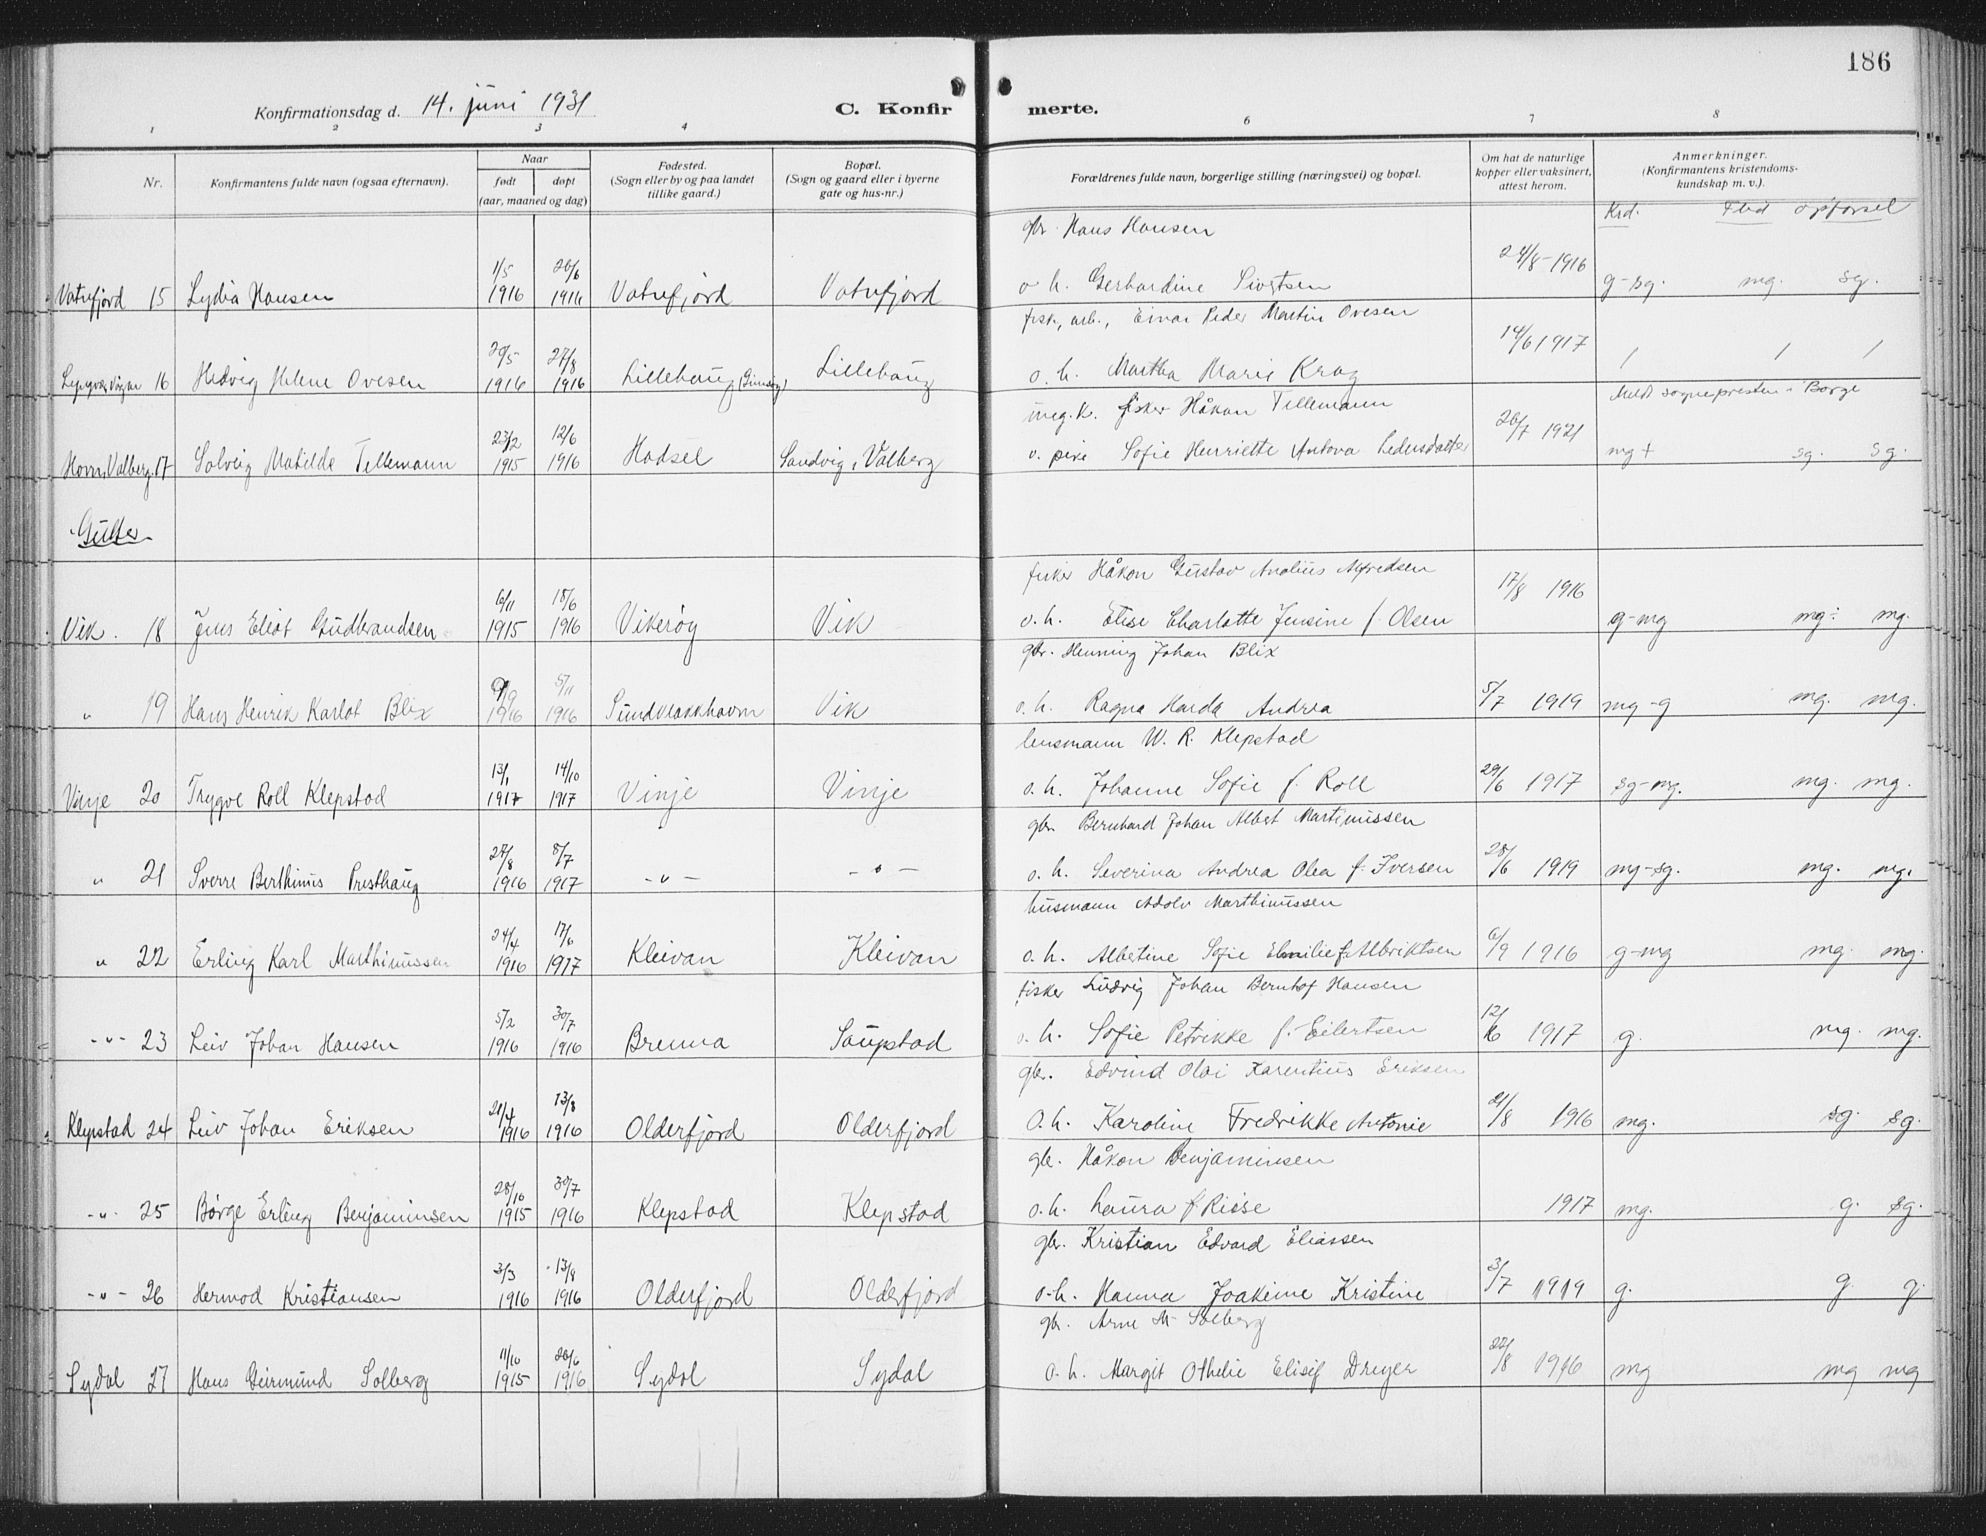 186
Konfirmationsdag d. 14. juni 1931
C. Konfir merte.
1 2 3 4 6 7 8
Nr.
Konfirmantens fulde navn (ogsaa efternavn).
Naar
født døpt
(aar, maaned og dag)
Fødested.
(Sogn eller by og paa landet
tillike gaard.)
Bopæl.
(Sogn og gaard eller i byerne
gate og hus-nr.)
Forældrenes fulde navn, borgerlige stilling (næringsvei) og bopæl.
Om hat de naturlige
kopper eller vaksinert,
attest herom.
Anmerkninger.
(Konfirmantens kristendoms-
kundskap m. v.).
Krd. Flid opførsel
gbr. Hans Hansen
1/5 20/6 24/8-1916
Vatnfjord 15 Lydia Hansen 1916 1916 Vatnfjord Vatnfjord o. h. Gerhardine Sivertsen g-sg. mg. sg.
fisk, arb., Einar Peder Martin Ovesen
20/5 27/8 14/6 1917
16 Hedvig Helene Ovesen 1916 1916 Lillehaug (Gimsøy) Lillehaug o. h. Martha Marie Krag / / /
Meldt sognepresten i Borge
ing. k. fisker Håkon Tellemann
23/2 12/6 20/7 1921
Horn, Valberg. 17 Solveig Matilde Tellemann 1915 1916 Hadsel Sandvig, Valberg o. pike Sofie Henriette Antona Pedersdatter mg+ sg. sg.
Gutter
fisker Håkon Gustav Analius Alfredsen
6/11 18/6 17/8 1916
Vik. 18 Jens Eliot Gudbrandsen 1915 1916 Vikerøy Vik o. h. Elise Charlotte Jensine f. Olsen g-mg mg÷ mg.
gbr. Henning Johan Blix
9/9 5/11
" 19 Hans Henrik Karlot Blix 1916 1916 Sundklakkhavn Vik o. h. Ragna Harda Andrea 5/7 1919 mg-g mg. mg.
lensmann W. R. Klepstad
13/1 14/10
Vinje 20 Trygve Roll Klepstad 1917 1917 Vinje Vinje o. h. Johanne Sofie f. Roll 29/6 1917 sg-mg. mg. mg.
gbr. Bernhard Johan Albert Martinussen
27/8 8/7
" 21 Sverre Berthinus Presthaug 1916 1917 -"- -"- o. h. Severina Andrea Olea f. Iversen 28/6 1919 mg-sg. mg. mg.
husmann Adolv Marthinussen
24/4 17/6
" 22 Erling Karl Marthinussen 1916 1917 Kleivan Kleivan o. h. Albertine Sofie Emilie f. Albriktsen 6/9 1916 g-mg mg. mg.
fisker Ludvig Johan Bernhof Hansen
5/2 30/7
-"- 23 Leiv Johan Hansen 1916 1916 Brenna Saupstad o. h. Sofie Petrikke f. Eilertsen 12/6 1917 g. mg. mg.
gbr. Edvind Olai Karentius Eriksen
21/4 13/8
Klepstad 24 Leiv Johan Eriksen 1916 1916 Olderfjord Olderfjord o. h. Karoline Fredrikke Antonie 21/8 1916 mg. sg. sg.
gbr. Håkon Benjaminsen
28/10 30/7
-"- 25 Børge Erling Benjaminsen 1915 1916 Klepstad Klepstad o. h. Laura f. Riise 1917 mg. g. sg.
gbr. Kristian Edvard Eliassen
3/3 13/8
-"- 26 Hermod Kristiansen 1916 1916 Olderfjord Olderfjord o. h. Hanna Joakime Kristine 3/7 1919 g. g. g.
gbr. Arne M. Solberg
11/10 20/6
Sydal 27 Hans Geirmund Solberg 1915 1916 Sydal Sydal o. h. Margit Othelie Elisif Dreyer 22/8 1916 mg mg mg